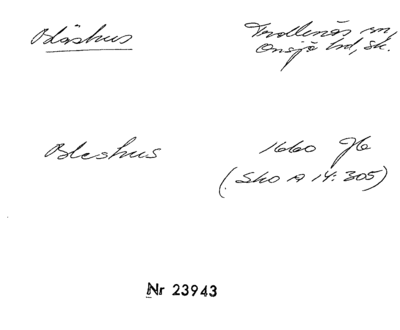 Bläshus
Trollenäs sn,
Onsjö hd, Sk.
Bleshus
1660 Jb
(Sko A 14:305)
Nr 23943